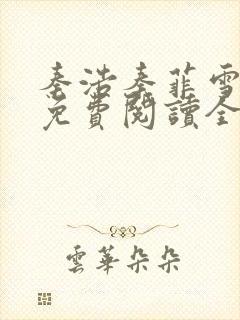 秦浩秦菲雪
免費閱讀全
雲華朵朵